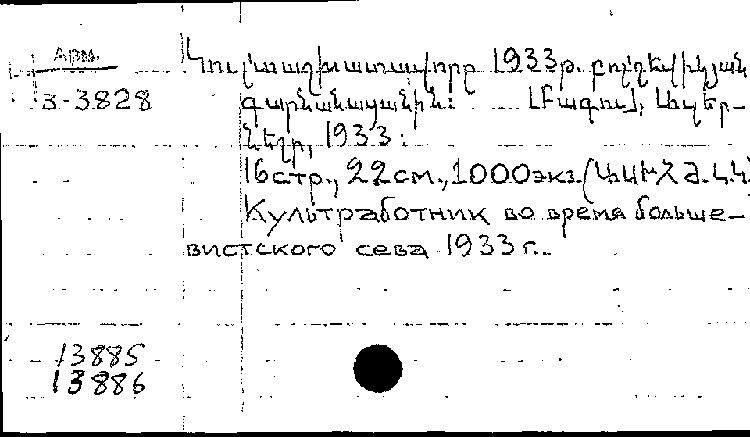 Арм.
3-3828
Կուլտաշխատավորը 1933թ. բոլշևիկյան
գարնանացանին: [Բագու], Ազեր-
նեշր, 1933:
16стр., 22см., 1000экз.
Культработник во время больше-
вистского сева 1933 г.
13885
13886